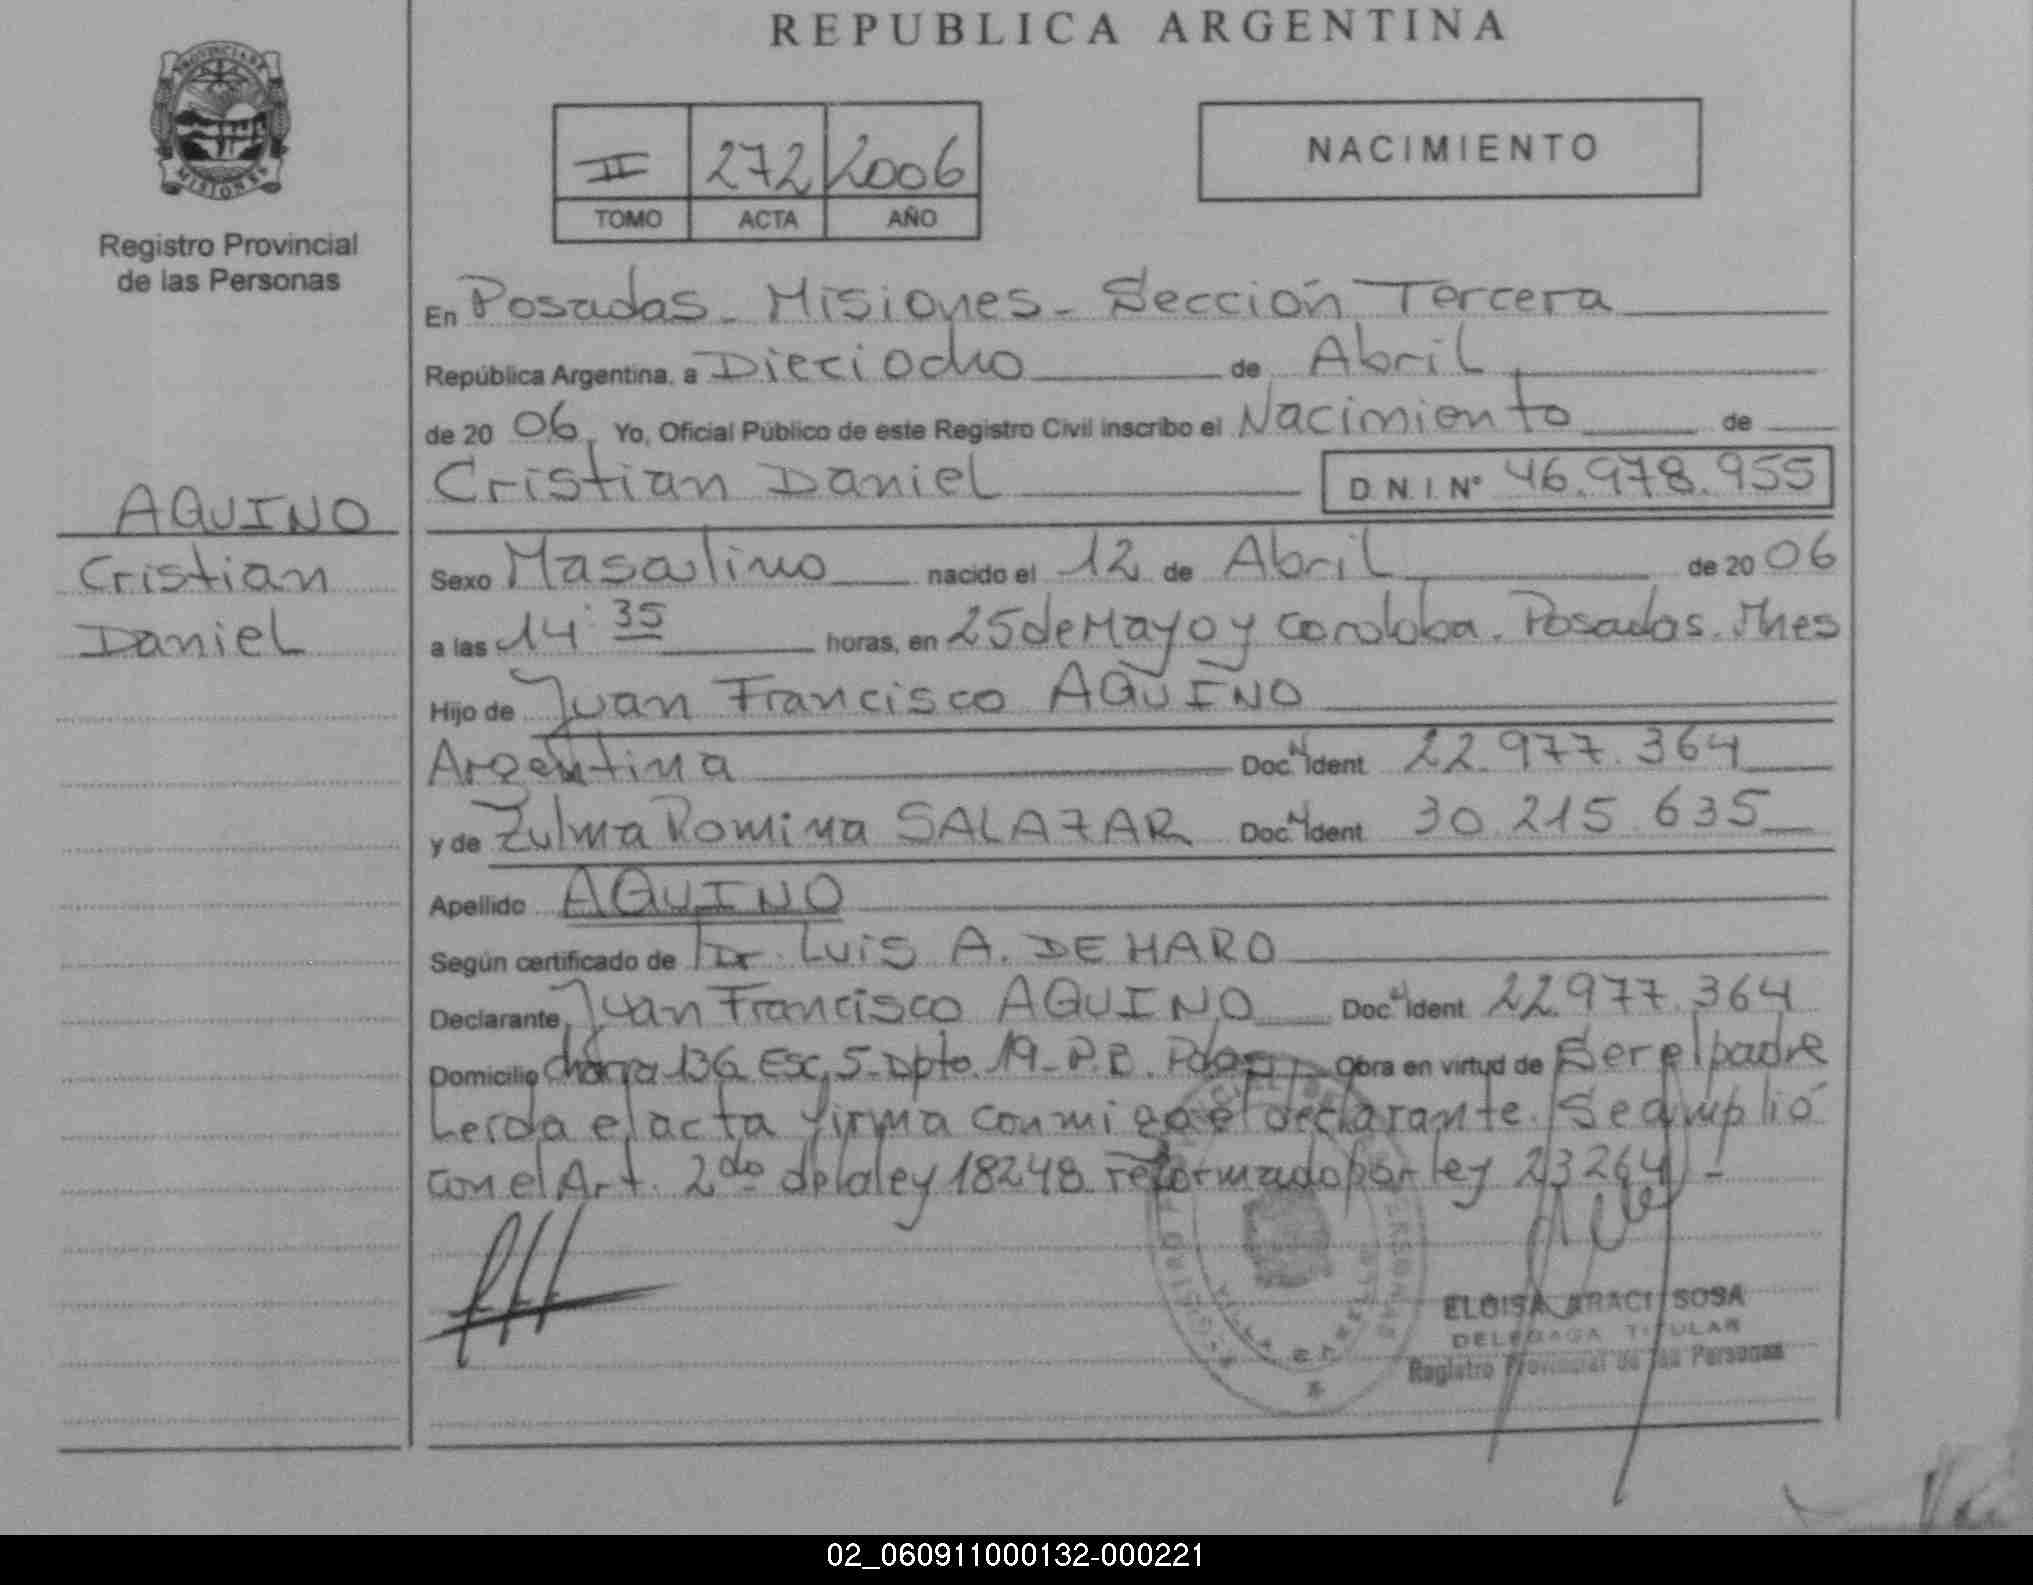 REPUBLICA ARGENTINA
PROVINCIA DE
MISIONES
Registro Provincial
de las Personas
II 272 2006
TOMO ACTA AÑO
NACIMIENTO
En Posadas - Misiones - Sección Tercera
República Argentina, a Dieciocho de Abril
de 20 06, Yo, Oficial Público de este Registro Civil inscribo el Nacimiento de
Cristian Daniel D.N.I. Nº 46.978.955
AQUINO
Cristian
Daniel
Sexo Masculino nacido el 12 de Abril de 20 06
a las 14:35 horas, en 25 de Mayo y Cordoba. Posadas. Mnes
Hijo de Juan Francisco AQUINO
Argentina Doc. N Ident 22.977.364
y de Zulma Romina SALAZAR Doc. N Ident 30.215.635
Apellido AQUINO
Según certificado de Dr. Luis A. DE HARO
Declarante Juan Francisco AQUINO Doc. N Ident 22.977.364
Domicilio chacra 136 Esc. 5 - Dpto. 19 - P.B. Pdas Obra en virtud de Ser el padre
Leída el acta firma conmigo el declarante. Se cumplió
con el Art. 2do de la ley 18248 reformado por ley 23264 -
ELOISA ARACI SOSA
DELEGADA TITULAR
Registro Provincial de las Personas
02_060911000132-000221